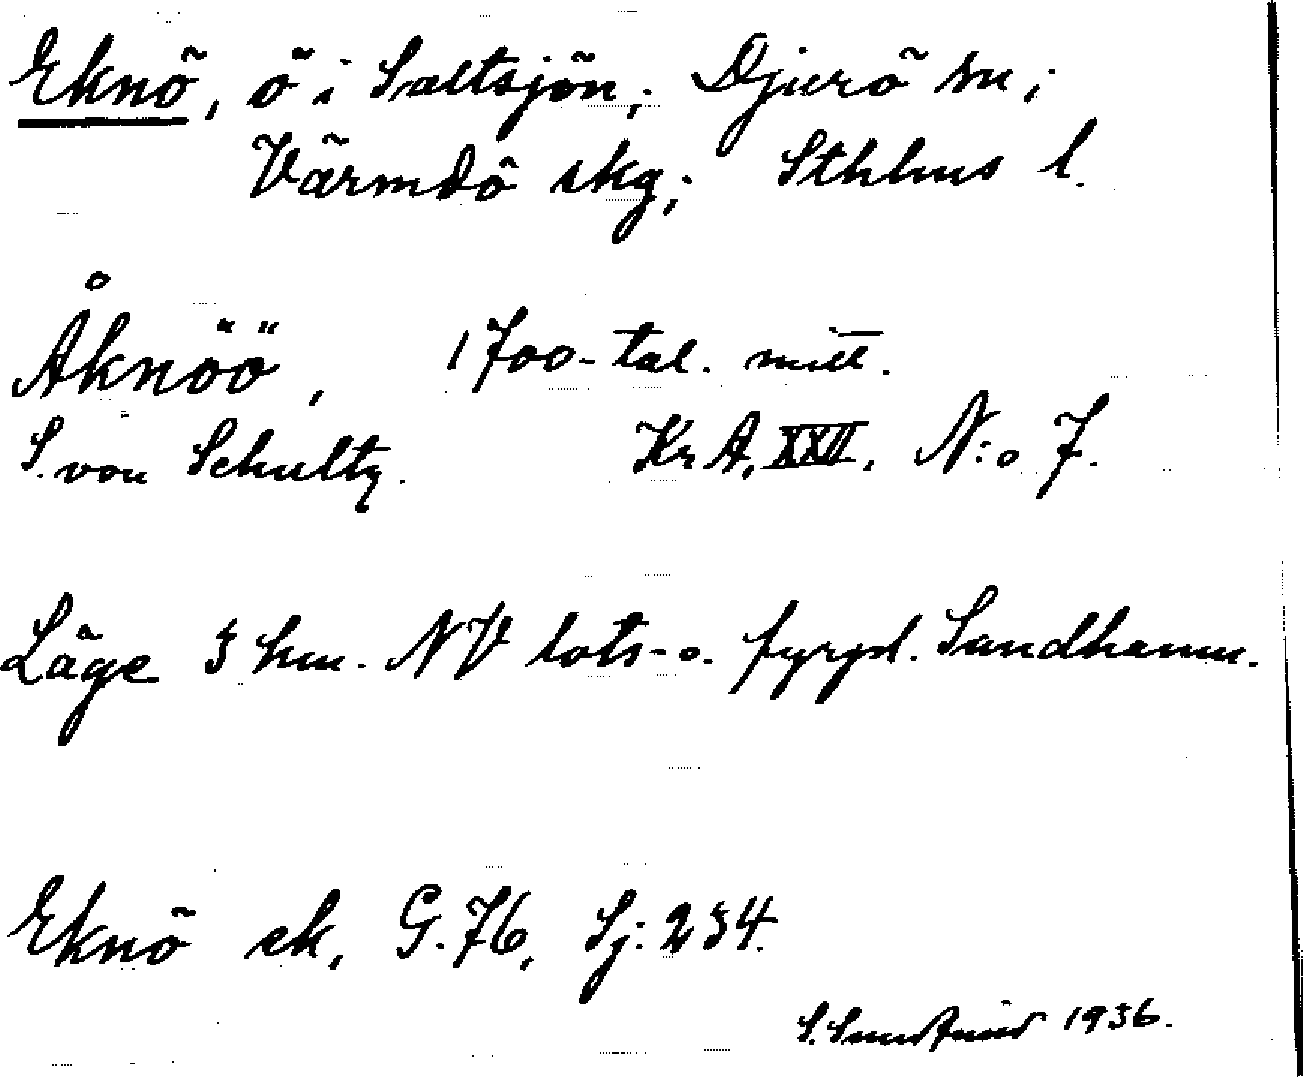 Eknö, ö i Saltsjön; Djurö sn;
Värmdö skg; Sthlms l.
Åknöö, 1700-tal. mitt.
S. von Schultz. Kr A, XXII, N:o 7.
Läge 3 km. NV lots- o. fyrpl. Sandhamn.
Eknö ek, G. 76, Sj: 234.
S. 1936.